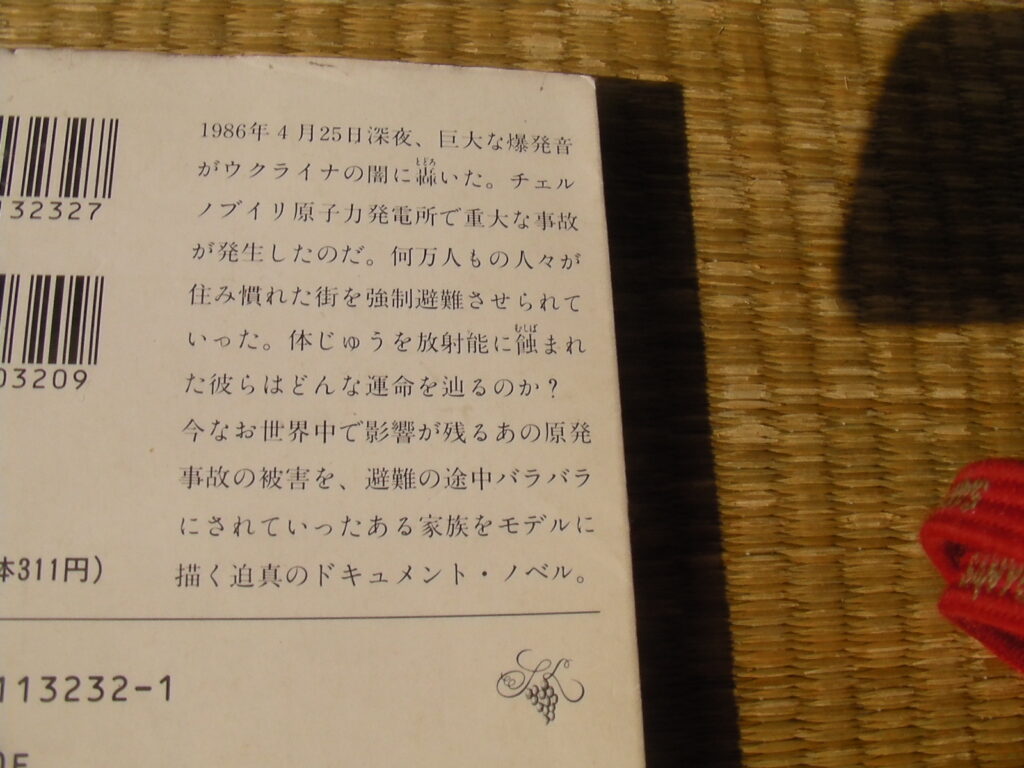 132327
03209
1986年4月25日深夜、巨大な爆発音
がウクライナの闇に轟いた。チェル
ノブイリ原子力発電所で重大な事故
が発生したのだ。何万人もの人々が
住み慣れた街を強制避難させられて
いった。体じゅうを放射能に蝕まれ
た彼らはどんな運命を辿るのか？
今なお世界中で影響が残るあの原発
事故の被害を、避難の途中バラバラ
にされていったある家族をモデルに
描く迫真のドキュメント・ノベル。
本311円)
113232-1